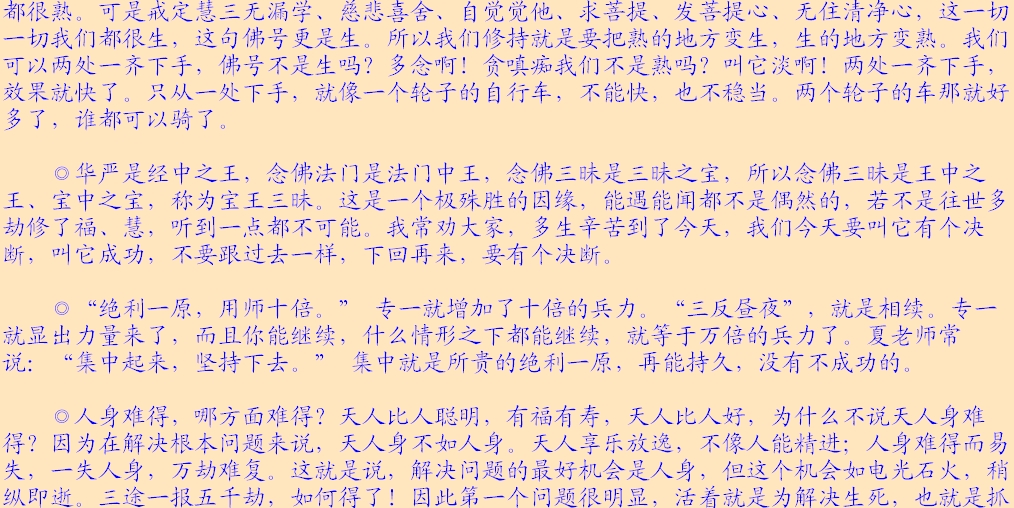 都很熟。可是戒定慧三无漏学、慈悲喜舍、自觉觉他、求菩提、发菩提心、无住清净心，这一切
一切我们都很生，这句佛号更是生。所以我们修持就是要把熟的地方变生，生的地方变熟。我们
可以两处一齐下手，佛号不是生吗？多念啊！贪嗔痴我们不是熟吗？叫它淡啊！两处一齐下手，
效果就快了。只从一处下手，就像一个轮子的自行车，不能快，也不稳当。两个轮子的车那就好
多了，谁都可以骑了。
◎华严是经中之王，念佛法门是法门中王，念佛三昧是三昧之宝，所以念佛三昧是王中之
王、宝中之宝，称为宝王三昧。这是一个极殊胜的因缘，能遇能闻都不是偶然的，若不是往世多
劫修了福、慧，听到一点都不可能。我常劝大家，多生辛苦到了今天，我们今天要叫它有个决
断，叫它成功，不要跟过去一样，下回再来，要有个决断。
◎“绝利一原，用师十倍。” 专一就增加了十倍的兵力。“三反昼夜”，就是相续。专一
就显出力量来了，而且你能继续，什么情形之下都能继续，就等于万倍的兵力了。夏老师常
说：“集中起来，坚持下去。” 集中就是所贵的绝利一原，再能持久，没有不成功的。
◎人身难得，哪方面难得？天人比人聪明，有福有寿，天人比人好，为什么不说天人身难
得？因为在解决根本问题来说，天人身不如人身。天人享乐放逸，不像人能精进；人身难得而易
失，一失人身，万劫难复。这就是说，解决问题的最好机会是人身，但这个机会如电光石火，稍
纵即逝。三途一报五千劫，如何得了！因此第一个问题很明显，活着就是为解决生死，也就是抓